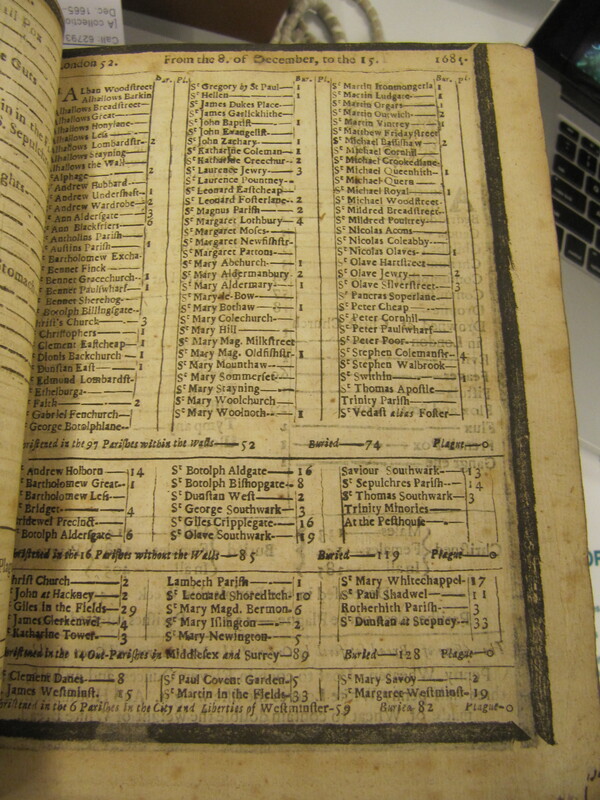 London 52. From the 8. of December, to the 15. 1685.
Bur. Pl.
ALban Woodstreet
Alhallows Barkin
Alhallows Breadstreet
Alhallows Great
Alhallows Honylane
Alhallows Less
Alhallows Lombardstr- 2
Alhallows Stayning
Alhallows the Wall
Alphage 2
Andrew Hubbard
Andrew Undershaft 1
Andrew Wardrobe 2
Ann Aldersgate
Ann Blackfriers 6
Antholins Parish
Austins Parish 1
Bartholomew Excha-
Bennet Finck
Bennet Gracechurch 1
Bennet Paulswharf 1
Bennet Sherehog
Botolph Billingsgate
Christ's Church 3
Christophers 1
Clement Eastcheap 1
Dionis Backchurch 1
Dunstan East 1
Edmund Lombardst-
Ethelburga
Faith 2
Gabriel Fenchurch
George Botolphlane
Bur. Pl.
St Gregory by St Paul 1
St Hellen 1
St James Dukes Place
St James Garlickhithe
St John Baptist 1
St John Evangelist
St John Zachary 1
St Katharine Coleman 1
St Katharine Creechur- 2
St Laurence Jewry 3
St Laurence Pountney
St Leonard Eastcheap
St Leonard Fosterlane 2
St Magnus Parish 2
St Margaret Lothbury 4
St Margaret Moses
St Margaret Newfishstr-
St Margaret Pattons
St Mary Abchurch 1
St Mary Aldermanbury 2
St Mary Aldermary 1
St Mary le Bow
St Mary Bothaw 1
St Mary Colechurch
St Mary Hill
St Mary Mag. Milkstreet
St Mary Mag. Oldfishstr- 1
St Mary Mounthaw
St Mary Sommerset
St Mary Stayning
St Mary Woolchurch
St Mary Woolnoth 1
Bur. Pl.
St Martin Ironmongerla 1
St Martin Ludgate 1
St Martin Orgars 1
St Martin Outwich 2
St Martin Vintrey 1
St Matthew Fridaystreet
St Michael Bassishaw 2
St Michael Cornhill
St Michael Crookedlane
St Michael Queenhith 1
St Michael Quern
St Michael Royal 1
St Michael Woodstreet
St Mildred Breadstreet
St Mildred Poultrey
St Nicolas Acons
St Nicolas Coleabby
St Nicolas Olaves 1
St Olave Hartstreet
St Olave Jewry 2
St Olave Silverstreet 3
St Pancras Soperlane
St Peter Cheap
St Peter Cornhill
St Peter Paulswharf
St Peter Poor
St Stephen Colemanstr- 4
St Stephen Walbrook
St Swithin 1
St Thomas Apostle
Trinity Parish
St Vedast alias Foster
Christened in the 97 Parishes within the Walls 52 Buried 74 Plague 0
Andrew Holborn 14
Bartholomew Great 1
Bartholomew Less
Bridget 4
Bridewel Precinct
Botolph Aldersgate 6
St Botolph Aldgate 16
St Botolph Bishopgate 8
St Dunstan West 2
St George Southwark 3
St Giles Cripplegate 16
St Olave Southwark 19
Saviour Southwark 13
St Sepulchres Parish 14
St Thomas Southwark 3
Trinity Minories
At the Pesthouse
Christened in the 16 Parishes without the Walls 85 Buried 119 Plague 0
Christ Church 2
John at Hackney 2
Giles in the Fields 29
James Clerkenwel 4
Katharine Tower 3
Lambeth Parish 1
St Leonard Shoreditch 10
St Mary Magd. Bermon- 6
St Mary Islington 2
St Mary Newington 5
St Mary Whitechappel 17
St Paul Shadwel 11
Rotherhith Parish 3
St Dunstan at Stepney 33
Christened in the 14 Out-Parishes in Middlesex and Surrey 89 Buried 128 Plague 0
Clement Danes 8
James Westminst. 15
St Paul Covent Garden 5
St Martin in the Fields 33
St Mary Savoy 2
St Margaret Westminst- 19
Christened in the 6 Parishes in the City and Liberties of Westminster 59 Buried 82 Plague 0